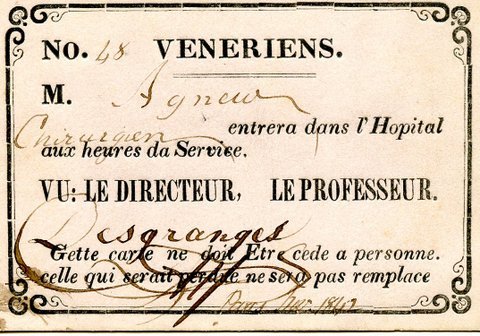 NO. 48 VENERIENS.
M. Agnew
Chirurgien entrera dans l'Hopital
aux heures da Service.
VU: LE DIRECTEUR, LE PROFESSEUR.
Desgranges
Gette carte ne doit Etre cede a personne.
celle qui serait perdue ne sera pas remplace
Paris 1842